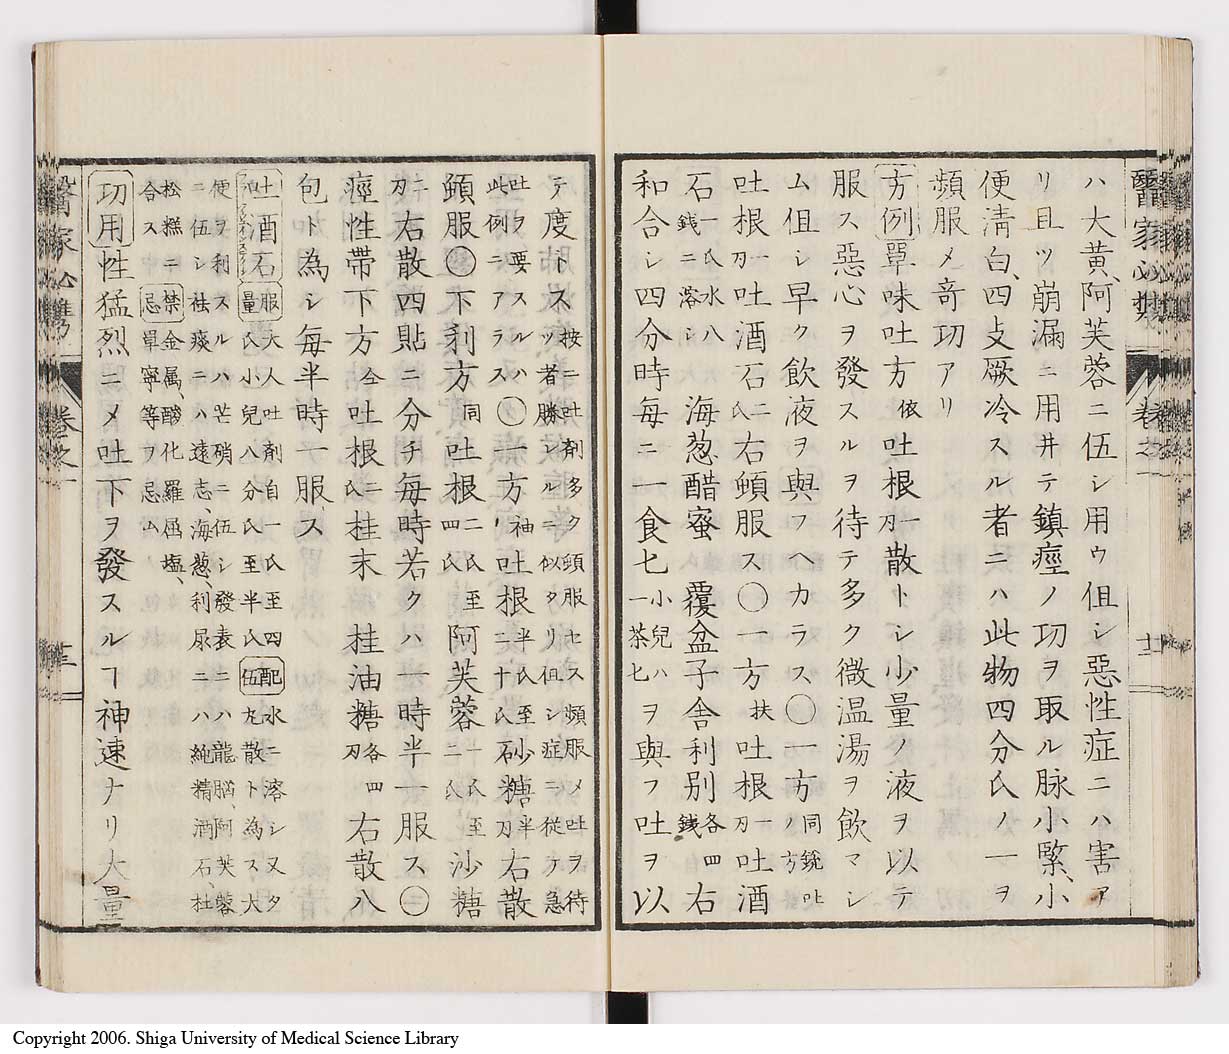 醫家必携
卷之一
十一
ハ大黄、阿芙蓉ニ伍シ用ウ但シ惡性症ニハ害ア
リ且ツ崩漏ニ用井テ鎮痙ノ功ヲ取ル脉小緊、小
便淸白、四支厥冷スル者ニハ此物四分氏ノ一ヲ
頻服メ竒功アリ
方例單味吐方依吐根刃一散トシ少量ノ液ヲ以テ
服ス惡心ヲ發スルヲ待テ多ク微温湯ヲ飲マシ
ム但シ早ク飲液ヲ與フヘカラス〇一方同銃吐ノ方
吐根刃一吐酒石氏二右頓服ス〇一方扶吐根刃一吐酒
石一氏水八銭ニ溶シ海葱醋蜜覆盆子舎利別各四銭右
和合シ四分時每ニ一食匕小兒ハ一茶匕ヲ與フ吐ヲ以
テ度トス按ニ吐劑多ク頓服セス頻服メ吐ヲ待ツ者勝レルニ似タリ但シ症ニ從ケ急
吐ヲ要スルハ此例ニアラス〇一方神吐根半氏至二十氏砂糖半刃右散
頓服〇下利方同吐根二氏至四氏阿芙蓉十氏至二氏沙糖
二刃右散四貼ニ分チ每時若クハ一時半一服ス〇
痙性帶下方仝吐根二氏桂末桂油糖各四刃右散八
包ト為シ每半時一服ス
吐酒石服量大人吐劑自一氏至四氏小兒八分氏至半氏配伍水ニ溶シ又タ丸散ト為ス大
便ヲ利スルハ芒硝ニ伍シ發表ニハ龍腦、阿芙蓉ニ伍シ祛痰ニハ遠志、海葱、利尿ニハ繩精酒石、杜
松糅ニ合ス禁忌金属、酸化羅屈塩、單寧等ヲ忌ム
功用性猛烈ニメ吐下ヲ發スルヿ神速ナリ大量
醫家必携
卷之一